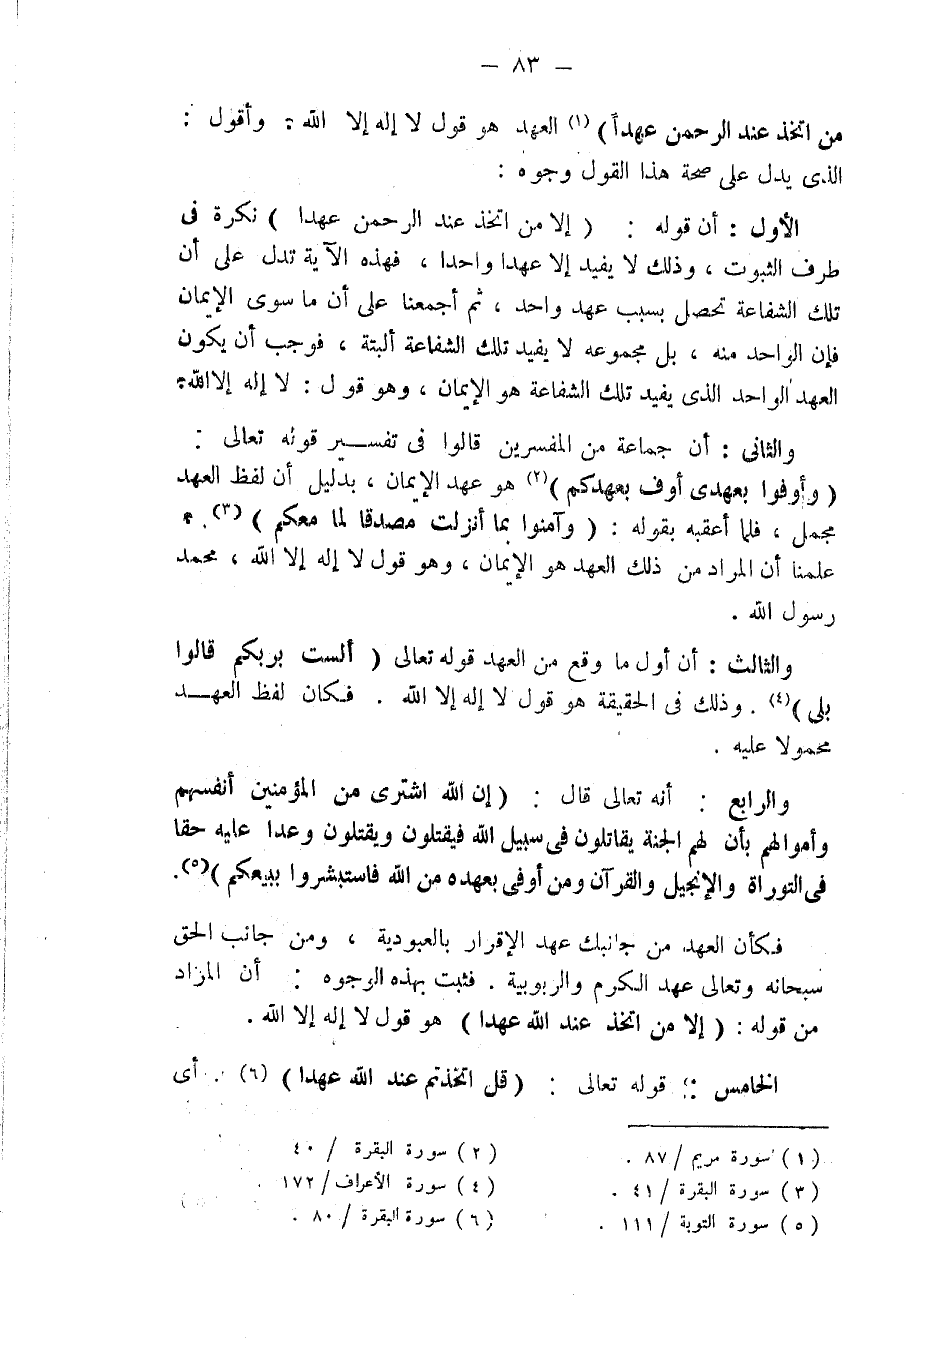 — ٨٣ —
من اتخذ عند الرحمن عهداً ) (١) العهد هو قول لا إله إلا الله . وأقول :
الذى يدل على صحة هذا القول وجوه :
الأول : أن قوله : ( إلا من اتخذ عند الرحمن عهدا ) نكرة فى
طرف الثبوت ، وذلك لا يفيد إلا عهدا واحدا ، فهذه الآية تدل على أن
تلك الشفاعة تحصل بسبب عهد واحد ، ثم أجمعنا على أن ما سوى الإيمان
فإن الواحد منه ، بل مجموعه لا يفيد تلك الشفاعة ألبتة ، فوجب أن يكون
العهد الواحد الذى يفيد تلك الشفاعة هو الإيمان ، وهو قول : لا إله إلا الله .
والثانى : أن جماعة من المفسرين قالوا فى تفســير قوله تعالى :
( وأوفوا بعهدى أوف بعهدكم ) (٢) هو عهد الإيمان ، بدليل أن لفظ العهد
مجمل ، فلما أعقبه بقوله : ( وآمنوا بما أنزلت مصدقا لما معكم ) (٣) . ؟
علمنا أن المراد من ذلك العهد هو الإيمان ، وهو قول لا إله إلا الله ، محمد
رسول الله .
والثالث : أن أول ما وقع من العهد قوله تعالى ( ألست بربكم قالوا
بلى ) (٤) . وذلك فى الحقيقة هو قول لا إله إلا الله . فكان لفظ العهــد
محمولا عليه .
والرابع : أنه تعالى قال : ( إن الله اشترى من المؤمنين أنفسهم
وأموالهم بأن لهم الجنة يقاتلون فى سبيل الله فيقتلون ويقتلون وعدا عليه حقا
فى التوراة والإنجيل والقرآن ومن أوفى بعهده من الله فاستبشروا ببيعكم ) (٥) .
فكأن العهد من جانبك عهد الإقرار بالعبودية ، ومن جانب الحق
سبحانه وتعالى عهد الكرم والربوبية . فثبت بهذه الوجوه : أن المراد
من قوله : ( إلا من اتخذ عند الله عهدا ) هو قول لا إله إلا الله .
الخامس : قوله تعالى : ( قل اتخذتم عند الله عهدا ) (٦) . أى
(١) سورة مريم / ٨٧ . (٢) سورة البقرة / ٤٠
(٣) سورة البقرة / ٤١ . (٤) سورة الأعراف / ١٧٢ .
(٥) سورة التوبة / ١١١ . (٦) سورة البقرة / ٨٠ .